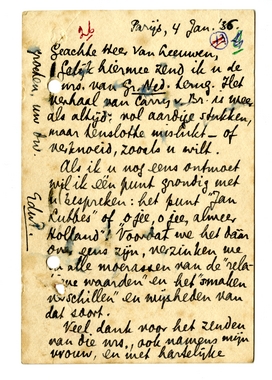 Parijs, 4 Jan. '36.
Geachte Heer Van Leeuwen,
Gelijk hiermee zend ik u de
mrs. van Gr. Ned. terug. Het
verhaal van Carry v. Br. is weer
als altijd: vol aardige stukken,
maar tenslotte mislukt – of
vermoeid, zooals u wilt.
Als ik u nog eens ontmoet
wil ik één punt grondig met
u bespreken: het punt "Jan
Lubbes" of o jée, o jée, alweer
Holland! Voordat we het daar
over eens zijn, verzinken we
in alle moerassen van de "rela-
tieve waarden" en het "smaken
verschillen" en wijsheden van
dat soort.
Veel dank voor het zenden
van die mrs., ook namens mijn
vrouw, en met hartelijke
groeten, uw dw.
EduP.